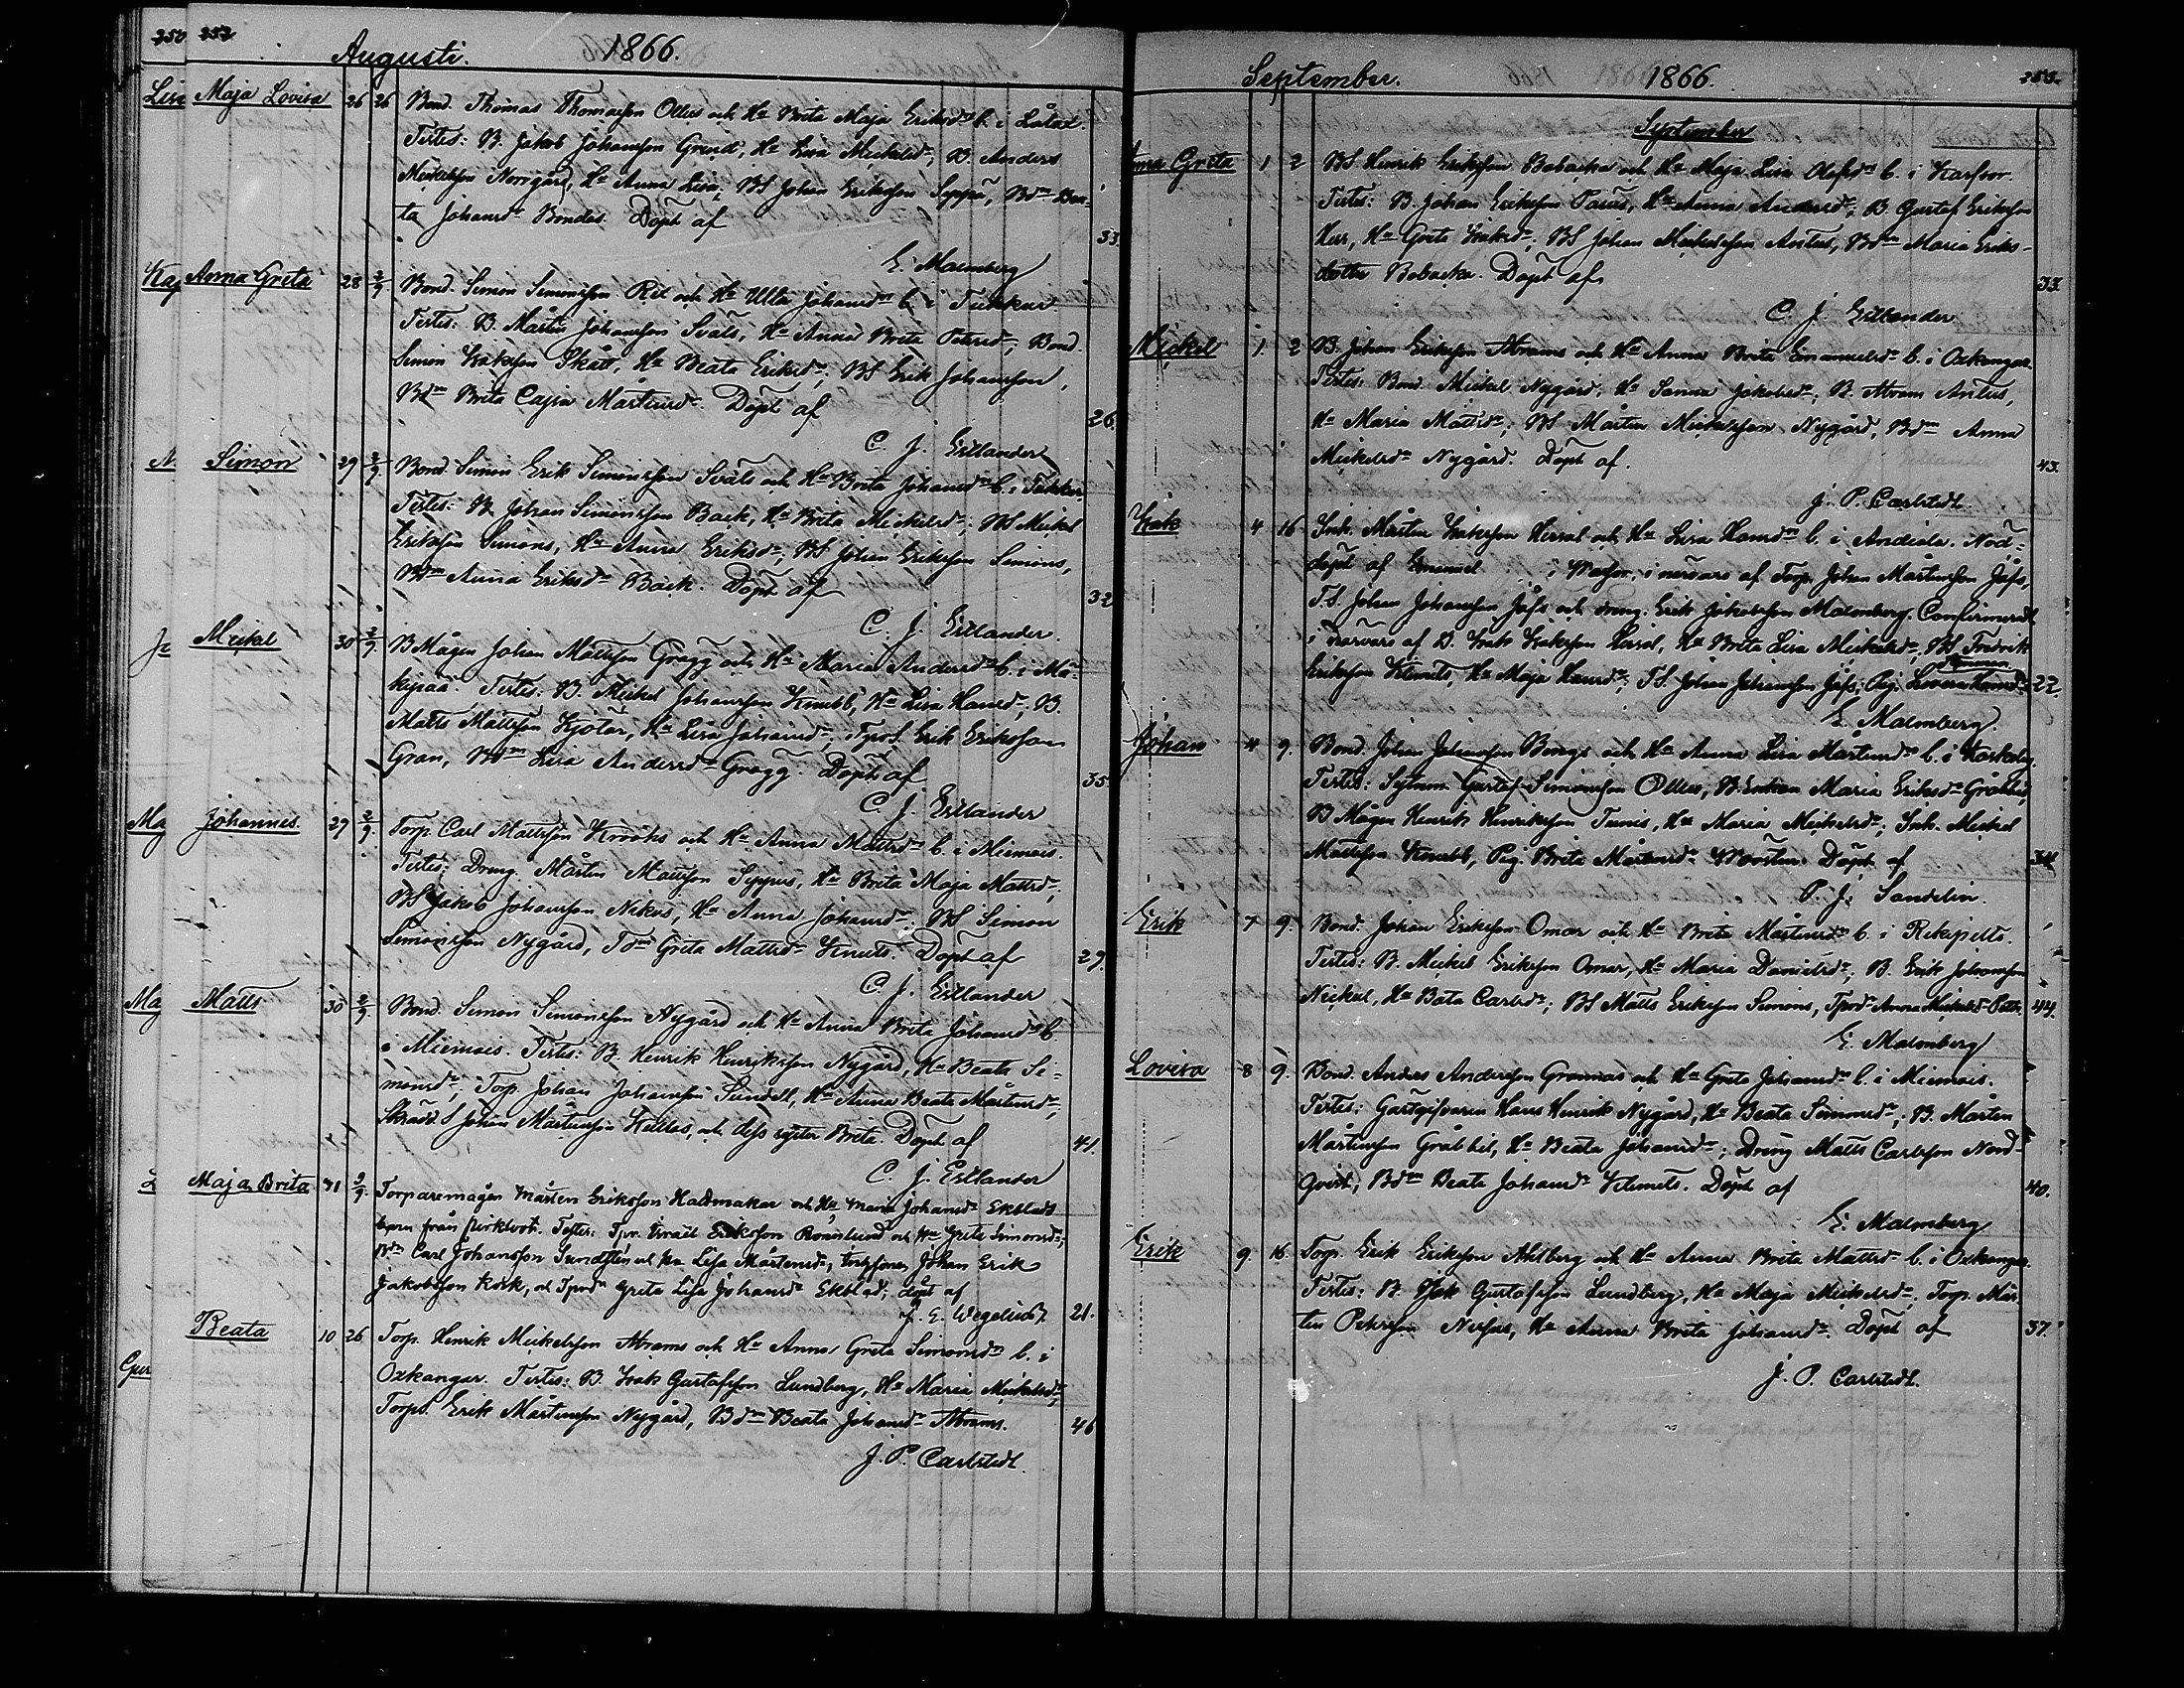 250 252
Augusti. 1866.
Maja Lovisa 26 26 Bond. Thomas Thomasson Ollus och Hu Brita Maja Eriksdr b. i Lålax.
Testes: B. Jakob Johansson Grind, Hu Lisa Mickelsdr; B. Anders
Mickelsson Norrgård, Hu Anna Lisa; BS Johan Eriksson Seppä, Bdr Bea-
ta Johansdr Bondas. Döpt af 33.
E. Malmberg
Anna Greta 28 2/9. Bond. Simon Simonsson Ril och Hu Ulla Johansdr b. i Tukkur.
Testes: B. Mårten Johansson Svals, Hu Anna Brita Petersdr; Bond.
Simon Isaksson Skått, Hu Beata Eriksdr; BS Erik Johansson,
Bdr Brita Cajsa Mårtensdr. Döpt af 26.
C. J. Estlander
Simon 29 2/9. Bond. Simon Erik Simonsson Svals och Hu Brita Johansdr b. i Tukkur
Testes: B. Johan Simonsson Back, Hu Brita Mickelsdr; BS Mickel
Eriksson Simons, Hu Anna Eriksdr; BS Johan Eriksson Simons,
Bdr Anna Eriksdr Back. Döpt af 32
C. J. Estlander.
Mickel 30 2/9. BMågen Johan Mattsson Gragg och Hu Maria Andersdr b. i Mä-
kipää. Testes: B. Mickel Johansson Knubb, Hu Lisa Hansdr; B.
Matts Mattsson Kjotar, Hu Lisa Johansdr; TprS. Erik Eriksson
Gran, Bdr Lisa Andersdr Gragg. Döpt af 35.
C. J. Estlander
Johannes. 29 2/9. Torp. Carl Mattsson Krooks och Hu Anna Mattsdr b. i Miemois.
Testes: Dreng. Mårten Mattsson Seppus, Hu Brita Maja Mattsdr;
BS Jakob Johansson Nikus, Hu Anna Johansdr; BS Simon
Simonsson Nygård, Tdr Greta Mattsdr Knuts. Döpt af 29.
C. J. Estlander
Matts 30 2/9 Bond. Simon Simonsson Nygård och Hu Anna Brita Johansdr b.
i Miemois. Testes: B. Henrik Henriksson Nygård, Hu Beata Si-
monsdr; Torp. Johan Johansson Sundell, Hu Anna Beata Mårtensdr;
Skrädd.S Johan Mårtensson Kallas, och dess syster Brita. Döpt af 41.
C. J. Estlander
Maja Brita 31 9/9. Torparemågen Mårten Eriksson Haldmakar och Hu Maria Johansdr Ekblads
barn från Testes: Tpr. Israël Eriksson Rönnlund och Hu Greta Simonsdr;
Carl Johansson Sundsten och Hu Lisa Mårtensdr; Torpsonen Johan Erik
Jakobsson Kock, och Tprdr Greta Lisa Johansdr Ekblad; döpt af
E. Wegelius 21.
Beata 10 26 Torp. Henrik Mickelsson Abrams och Hu Anna Greta Simonsdr b. i
Oxkangar. Testes: B. Isak Gustafsson Lundberg, Hu Maria Mickelsdr;
Torps. Erik Mårtensson Nygård, Bdr Beata Johansdr Abrams. 46
J. P. Carlstedt.
September. 1866. 253.
September
Anna Greta 1 2 BS. Henrik Eriksson Bobacka och Hu Maja Lisa Olofsdr b. i Karfsor
Testes: B. Johan Eriksson Parus, Hu Anna Andersdr; B. Gustaf Eriksson
Herr, Hu Greta Isaksdr; BS Johan Mickelsson Antus, Bdr Maria Eriks-
dotter Bobacka. Döpt af 33.
C. J. Estlander
Mickel 1. 2 B. Johan Eriksson Abrams och Hu Anna Brita Emanuelsdr b. i Oxkangar
Testes: Bond. Mickel Nygård, Hu Sanna Jakobsdr; B. Abram Antus,
Hu Maria Mattsdr; BS Mårten Mickelsson Nygård, Bdr Anna
Mickelsdr Nygård. Döpt af. 43.
J. P. Carlstedt.
Isak 4 16 Inh. Mårten Isaksson Hersal och Hu Lisa Hansdr b. i Andiala. Nöd-
döpt af Emanuel i närvaro af Torp. Johan Mårtensson Jåfs,
T.S. Johan Johansson Jåfs och dreng. Erik Jakobsson Malmberg. Confirmerad
i närvaro af B. Isak Isaksson Hersal, Hu Brita Lisa Mickelsdr; BS Fredrik
Eriksson Klemets, Hu Maja Hansdr; T.S. Johan Johansson Jåfs, Pig. Lovisa Hansdr 22.
E. Malmberg.
Johan 4 9. Bond. Johan Johansson Benge och Hu Anna Lisa Mårtensdr b. i Kaskeby
Testes: Sytnm. Gustaf Simonsson Ollus, B.Enkan Maria Eriksdr Gråbbil;
BMågen Henrik Henriksson Tunis, Hu Maria Mickelsdr; Inh. Mickel
Mattsson Knubb, Pig. Brita Mårtensdr Döpt af 34.
P. J. Sandelin.
Erik 7 9. Bond. Johan Eriksson Omar och Hu Brita Mårtensdr b. i Rekipelto.
Testes: B. Mickel Eriksson Omar, Hu Maria Danielsdr; B. Erik Johansson
Nickul, Hu Beata Carlsdr; BS Matts Eriksson Simons, Tprdr Anna Mickelsdr 44.
E. Malmberg
Lovisa 8 9. Bond. Anders Andersson Grannas och Hu Greta Johansdr b. i Miemois.
Testes: Gästgifvaren Hans Henrik Nygård, Hu Beata Simonsdr; B. Mårten
Mårtensson Gråbbil, Hu Beata Johansdr; Dreng Matts Carlsson Nord-
qvist, Bdr Beata Johansdr Klemets. Döpt af 40.
E. Malmberg
Erik 9. 16 Torp. Erik Eriksson Ahlberg och Hu Anna Brita Mattsdr b. i Oxkangar.
Testes: B. Isak Gustafsson Lundberg, Hu Maja Mickelsdr; Torp. Mår-
ten Petersson Nissas, Hu Anna Brita Johansdr. Döpt af 37.
J. P. Carlstedt.